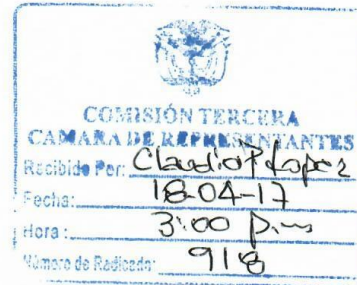 COMISIÓN TERCERA
CAMARA DE REPRESENTANTES
Recibido Por: Claudia P Lopez
Fecha: 18-04-17
Hora: 3:00 p.m
Número de Radicado: 918